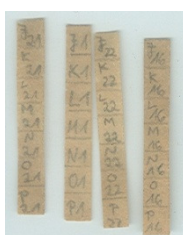 J
21
K
21
L
21
M
21
N
21
O
21
P
J1
K1
L1
M1
N1
O1
P1
J
22
K
22
L
22
M
22
N
22
O
22
P
22
J
16
K
16
L
16
M
16
N
16
O
16
P
16